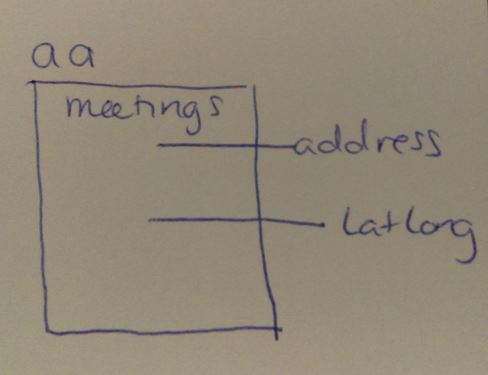 aa
meetings
address
Latlong